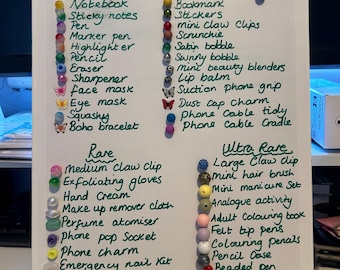 Notebook
Sticky notes
Pen
Marker pen
Highlighter
Pencil
Eraser
Sharpener
Face mask
Eye mask
Squashy
Boho bracelet
Bookmark
Stickers
mini claw clips
Scrunchie
Satin bobble
Swirly bobble
mini beauty blenders
Lip balm
Suction phone grip
Dust cap charm
Phone Cable tidy
Phone Cable Cradle
Rare
Medium claw clip
Exfoliating gloves
Hand Cream
Make up remover cloth
Perfume atomiser
Phone pop Socket
Phone charm
Emergency nail Kit
Ultra Rare
Large Claw clip
Mini hair brush
Mini manicure Set
Analogue activity
Adult Colouring book
Felt tip pens
Colouring pencils
Pencil Case
Beaded pen